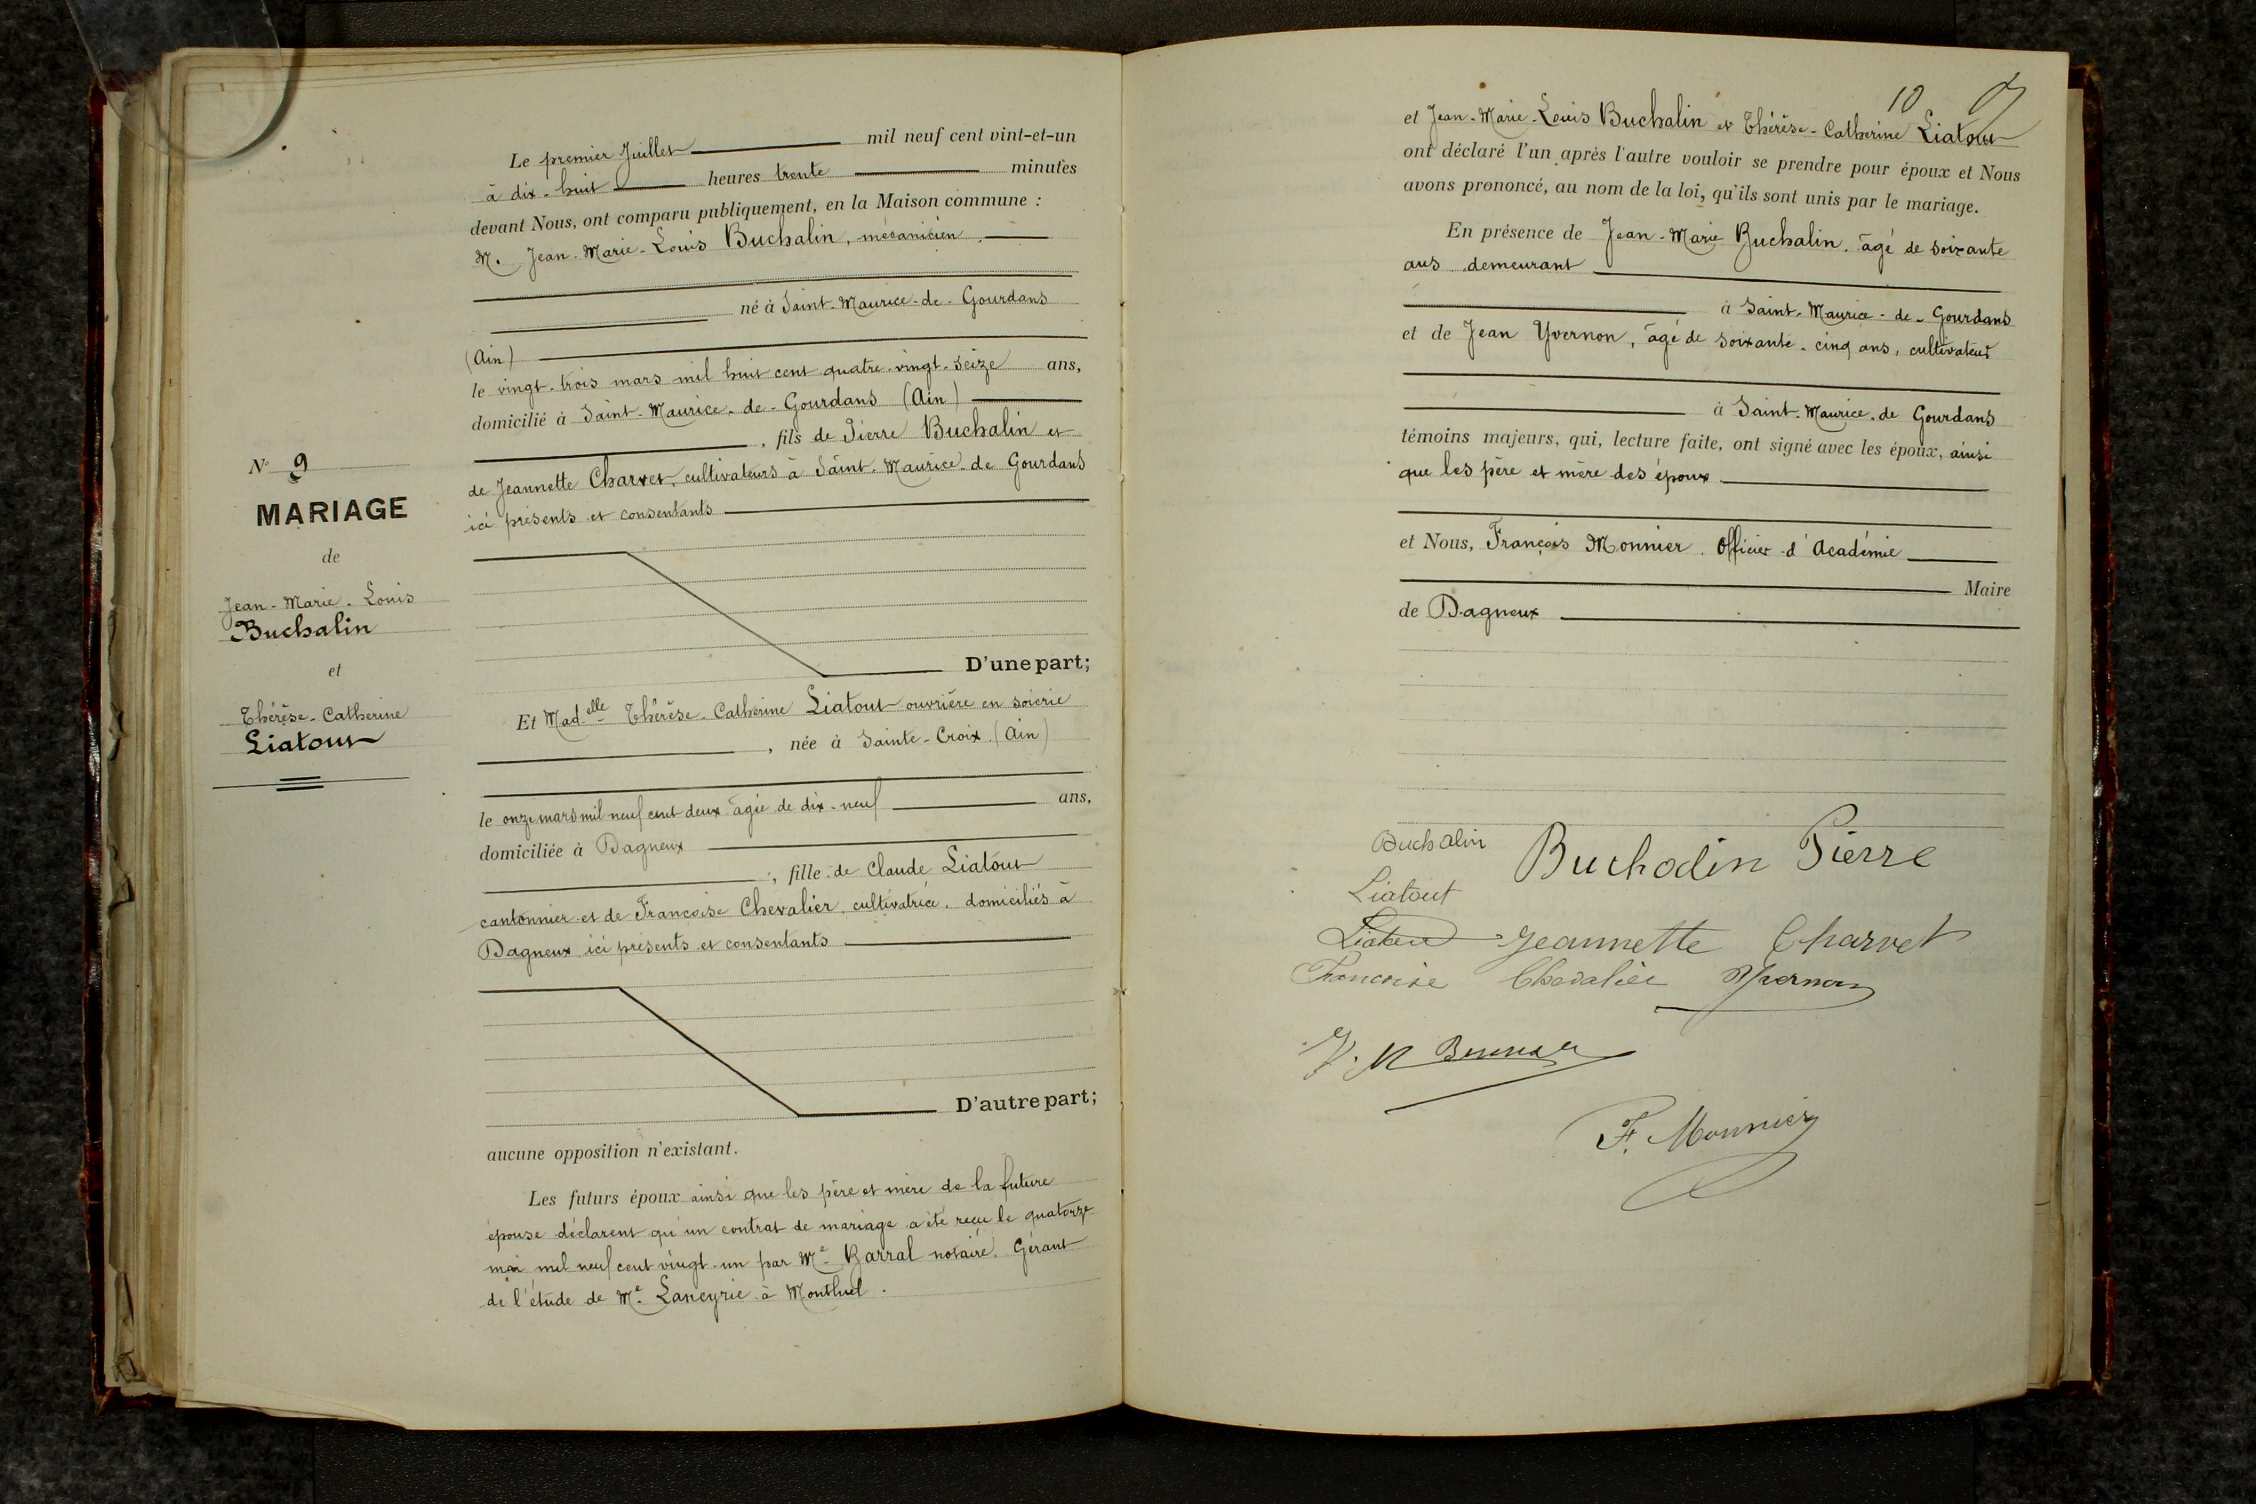 Le premier Juillet mil neuf cent vint-et-un
à dix-huit heures trente minutes
devant Nous, ont comparu publiquement, en la Maison commune :
M. Jean-Marie-Louis Buchalin, mécanicien,
né à Saint-Maurice-de-Gourdans
(Ain)
le vingt-trois mars mil huit cent quatre-vingt-seize ans,
domicilié à Saint-Maurice-de-Gourdans (Ain)
, fils de Pierre Buchalin et
de Jeannette Charvet, cultivateurs à Saint-Maurice-de Gourdans
ici présents et consentants
N° 9
MARIAGE
de
Jean-Marie-Louis
Buchalin
et
Thérèse-Catherine
Liatout
D'une part;
Et Mad.elle Thérèse-Catherine Liatout ouvrière en soierie
, née à Sainte-Croix (Ain)
le onze mars mil neuf cent deux âgée de dix-neuf ans,
domiciliée à Dagneux
, fille de Claude Liatout
cantonnier et de Françoise Chevalier, cultivatrice, domiciliés à
Dagneux ici présents et consentants
D'autre part;
aucune opposition n'existant.
Les futurs époux ainsi que les père et mère de la future
épouse déclarent qu'un contrat de mariage a été reçu le quatorze
mai mil neuf cent vingt-un par Me Barral notaire, Gérant
de l'étude de Me Laneyrie à Montluel.
10
et Jean-Marie-Louis Buchalin et Thérèse-Catherine Liatout
ont déclaré l'un après l'autre vouloir se prendre pour époux et Nous
avons prononcé, au nom de la loi, qu'ils sont unis par le mariage.
En présence de Jean-Marie Buchalin, âgé de soixante
ans demeurant
à Saint-Maurice-de-Gourdans
et de Jean Yvernon, âgé de soixante-cinq ans, cultivateur
à Saint-Maurice-de Gourdans
témoins majeurs, qui, lecture faite, ont signé avec les époux, ainsi
que les père et mère des époux
et Nous, François Monnier, Officier d'Académie
Maire
de Dagneux
Buchalin Buchalin Pierre
Liatout
Liatout Jeannette Charvet
Francoise Chevalier Yvernon
F. Monnier